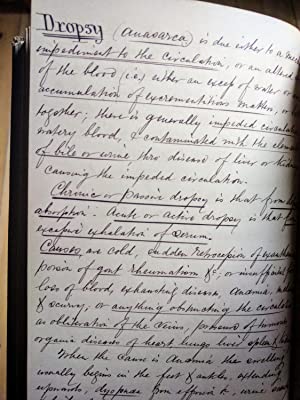 Dropsy (Anasarca) is due either to a mec
impediment to the circulation, or an altered
of the blood (i.e) either an excess of water or
accumulation of excrementitious matters, or
together; there is generally impeded circulation
watery blood, & contaminated with the elements
of bile or urine thro disease of liver or kidn
causing the impeded circulation.
Chronic or passive dropsy is that from def
absorption. Acute or active dropsy is that f
excessive exhalation of serum.
Causes are cold, sudden retrocession of exanthem
poison of gout rheumatism &c, or insufficient f
loss of blood, exhausting disease, Anæmia,
& scurvy, or anything obstructing the circulation
as obliteration of the veins, pressure of tumours
organic diseases of heart lungs liver spleen &
When the cause is Anæmia the swelling
usually begins in the feet & ankles, extending
upwards, dyspnoea from effusion &c, urine